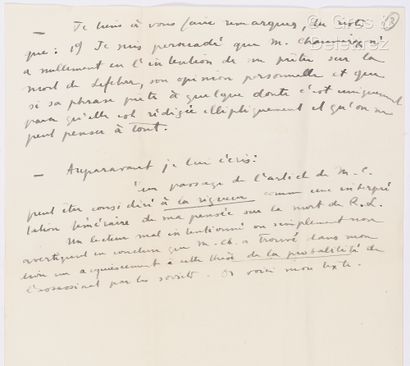 — Je tiens à vous faire remarquer, du reste
que : 1º Je suis persuadé que M. Chaumeix n'
a nullement eu l'intention de me prêter sur la
mort de Lefebvre, son opinion personnelle et que
si sa phrase prête à quelque doute c'est uniquement
parce qu'elle est rédigée elliptiquement et qu'on ne
peut penser à tout.
— Auparavant je lui écris :
"un passage de l'article de M. C.
peut être considéré à la rigueur comme une interpré
tation téméraire de ma pensée sur la mort de R. L.
Un lecteur mal intentionné ou simplement non
averti peut en conclure que M. Ch. a trouvé dans mon
livre un acquiescement à cette thèse de la probabilité de
l'assassinat par les soviets. Or voici mon texte.
3
Gros &
Delettrez